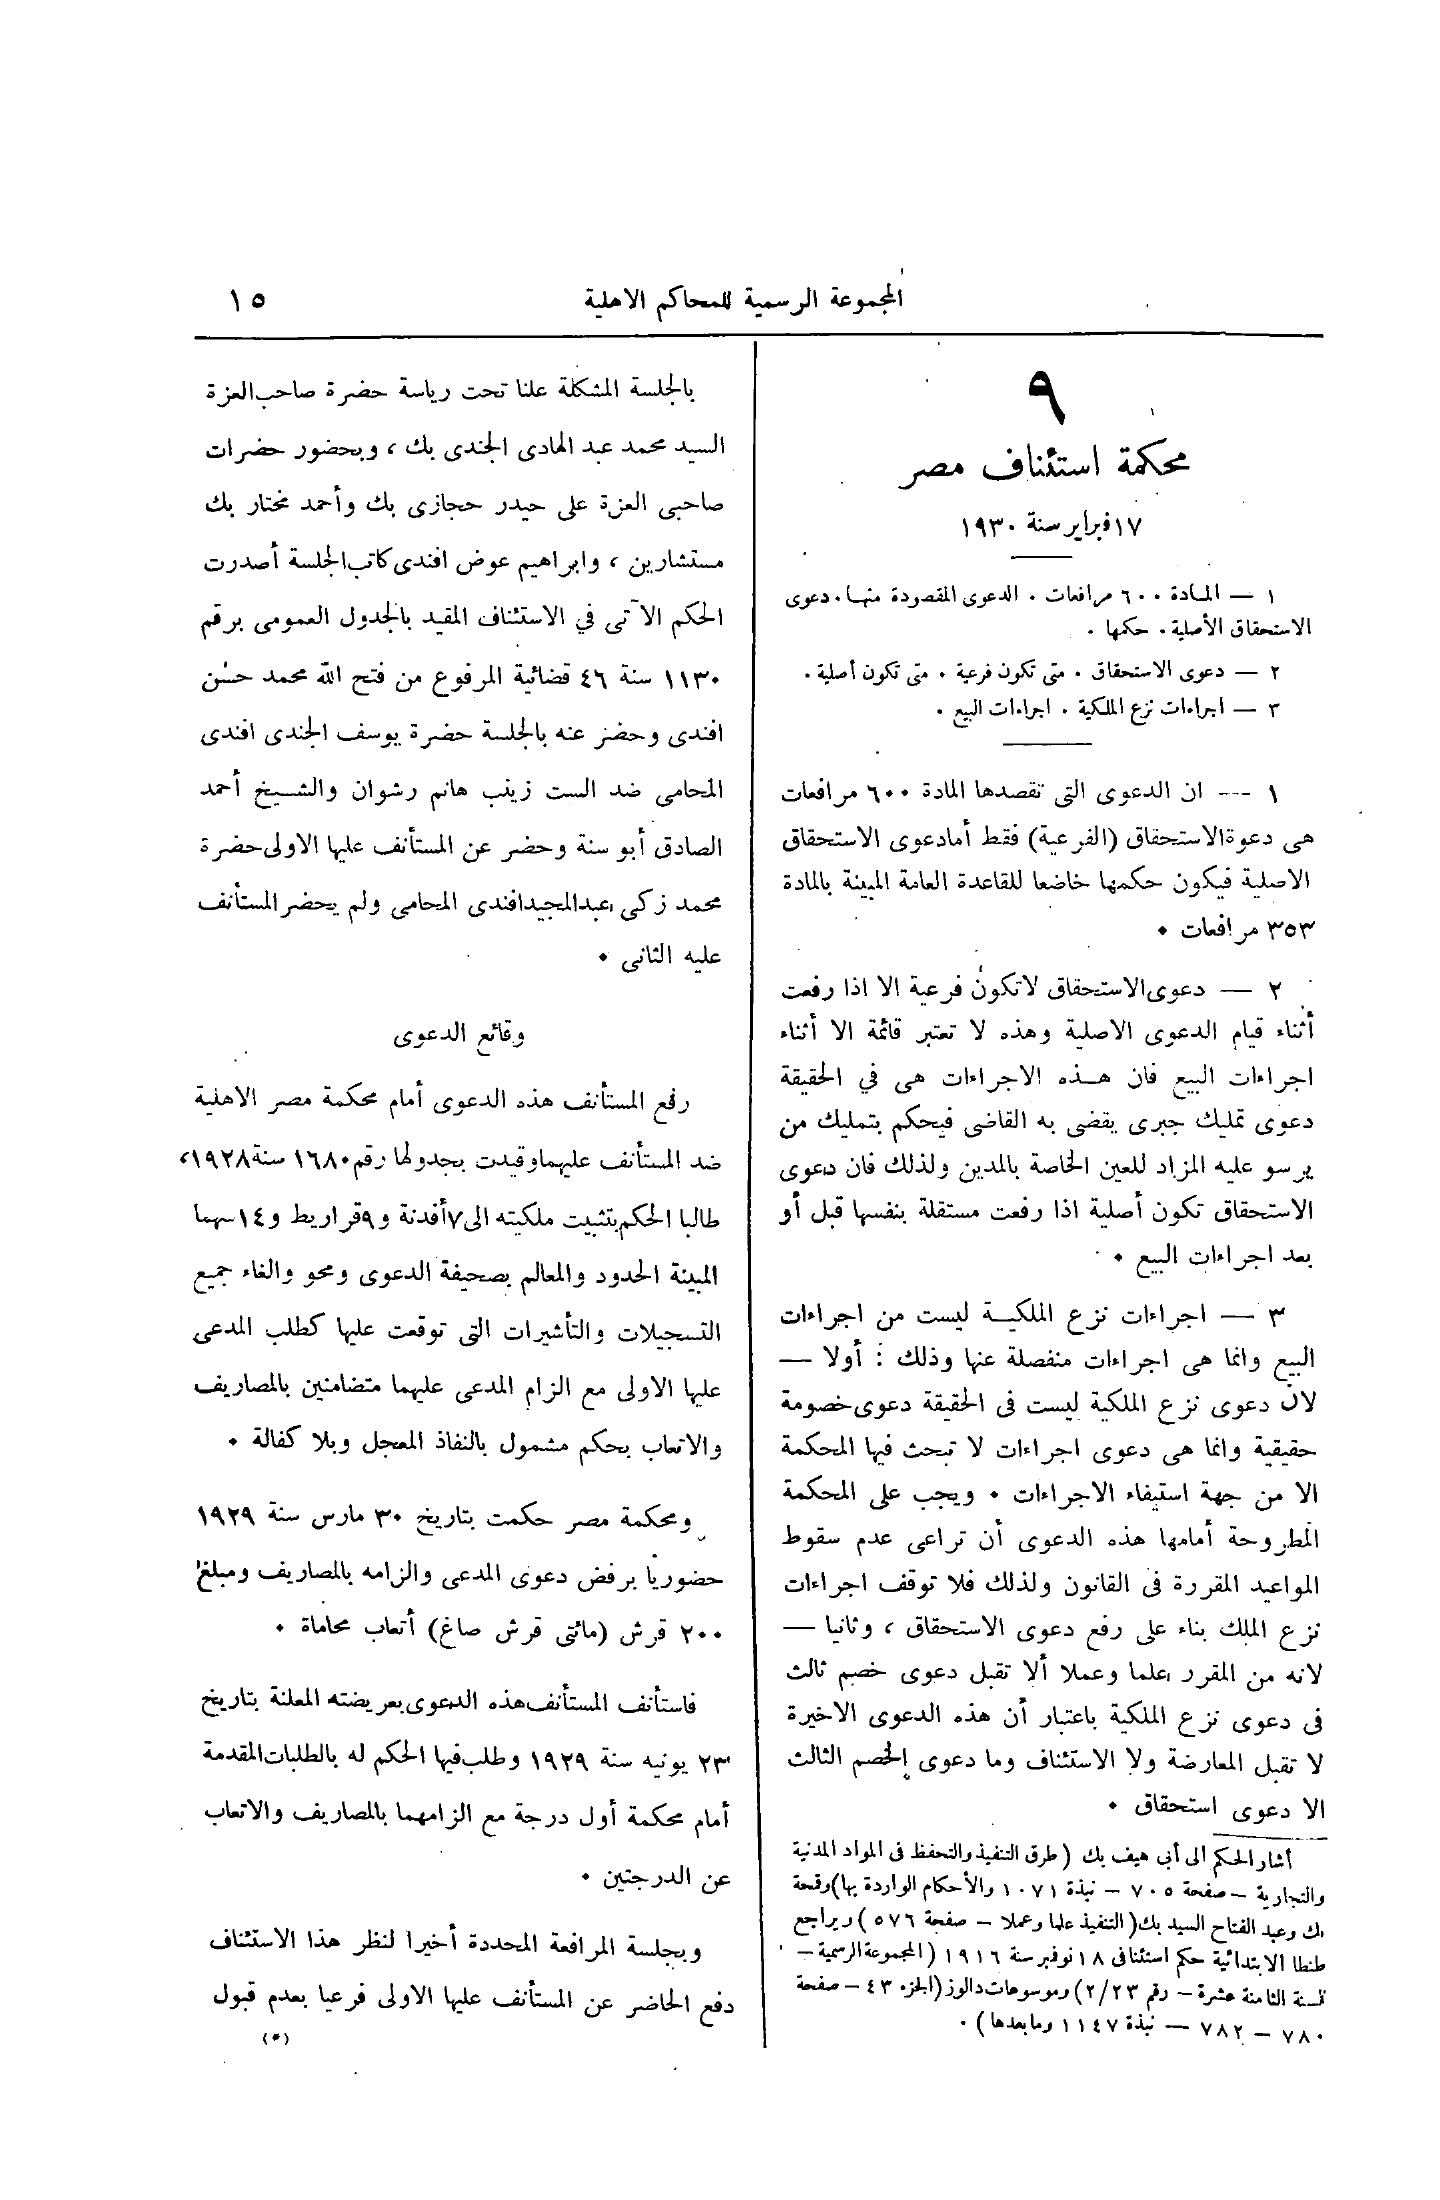 المجموعة الرسمية للمحاكم الاهلية
١٥
٩
محكمة استئناف مصر
١٧ فبراير سنة ١٩٣٠
١ — المادة ٦٠٠ مرافعات . الدعوى المقصودة منها . دعوى
الاستحقاق الأصلية . حكمها .
٢ — دعوى الاستحقاق . متى تكون فرعية . متى تكون أصلية .
٣ — اجراءات نزع الملكية . اجراءات البيع .
١ — ان الدعوى التى تقصدها المادة ٦٠٠ مرافعات
هى دعوة الاستحقاق (الفرعية) فقط أما دعوى الاستحقاق
الاصلية فيكون حكمها خاضعا للقاعدة العامة المبينة بالمادة
٣٥٣ مرافعات .
٢ — دعوى الاستحقاق لا تكون فرعية الا اذا رفعت
أثناء قيام الدعوى الاصلية وهذه لا تعتبر قائمة الا أثناء
اجراءات البيع فان هذه الاجراءات هى في الحقيقة
دعوى تمليك جبرى يقضى به القاضى فيحكم بتمليك من
يرسو عليه المزاد للعين الخاصة بالمدين ولذلك فان دعوى
الاستحقاق تكون أصلية اذا رفعت مستقلة بنفسها قبل أو
بعد اجراءات البيع .
٣ — اجراءات نزع الملكية ليست من اجراءات
البيع وانما هى اجراءات منفصلة عنها وذلك : أولا —
لان دعوى نزع الملكية ليست فى الحقيقة دعوى خصومة
حقيقية وانما هى دعوى اجراءات لا تبحث فيها المحكمة
الا من جهة استيفاء الاجراءات . ويجب على المحكمة
المطروحة أمامها هذه الدعوى أن تراعى عدم سقوط
المواعيد المقررة فى القانون ولذلك فلا توقف اجراءات
نزع الملك بناء على رفع دعوى الاستحقاق ، وثانيا —
لانه من المقرر علما وعملا ألا تقبل دعوى خصم ثالث
فى دعوى نزع الملكية باعتبار أن هذه الدعوى الاخيرة
لا تقبل المعارضة ولا الاستئناف وما دعوى الخصم الثالث
الا دعوى استحقاق .
أشار الحكم الى أبى هيف بك (طرق التنفيذ والتحفظ فى المواد المدنية
والتجارية – صفحة ٧٠٥ – نبذة ١٠٧١ والأحكام الواردة بها) وقمحة
بك وعبد الفتاح السيد بك (التنفيذ علما وعملا – صفحة ٥٧٦) ويراجع
طنطا الابتدائية حكم استئنافى ١٨ نوفبر سنة ١٩١٦ (المجموعة الرسمية –
لسنة الثامنة عشرة – رقم ٢/٢٣) وموسوعات دالوز (الجزء ٤٣ – صفحة
٧٨٠ – ٧٨٢ – نبذة ١١٤٧ وما بعدها) .
بالجلسة المشكلة علنا تحت رياسة حضرة صاحب العزة
السيد محمد عبد الهادى الجندى بك ، وبحضور حضرات
صاحبى العزة على حيدر حجازى بك وأحمد مختار بك
مستشارين ، وابراهيم عوض افندى كاتب الجلسة أصدرت
الحكم الآتى في الاستئناف المقيد بالجدول العمومى برقم
١١٣٠ سنة ٤٦ قضائية المرفوع من فتح الله محمد حسن
افندى وحضر عنه بالجلسة حضرة يوسف الجندى افندى
المحامى ضد الست زينب هانم رشوان والشيخ أحمد
الصادق أبو سنة وحضر عن المستأنف عليها الاولى حضرة
محمد زكى عبد المجيد افندى المحامى ولم يحضر المستأنف
عليه الثانى .
وقائع الدعوى
رفع المستأنف هذه الدعوى أمام محكمة مصر الاهلية
ضد المستأنف عليهما وقيدت بجدولها رقم ١٦٨٠ سنة ١٩٢٨،
طالبا الحكم بتثبيت ملكيته الى ٧ أفدنة و٩ قراريط و١٤ سهما
المبينة الحدود والمعالم بصحيفة الدعوى ومحو والغاء جميع
التسجيلات والتأشيرات التى توقعت عليها كطلب المدعى
عليها الاولى مع الزام المدعى عليهما متضامنين بالمصاريف
والاتعاب بحكم مشمول بالنفاذ المعجل وبلا كفالة .
ومحكمة مصر حكمت بتاريخ ٣٠ مارس سنة ١٩٢٩
حضوريا برفض دعوى المدعى والزامه بالمصاريف ومبلغ
٢٠٠ قرش (مائتى قرش صاغ) أتعاب محاماة .
فاستأنف المستأنف هذه الدعوى بعريضته المعلنة بتاريخ
٢٣ يونيه سنة ١٩٢٩ وطلب فيها الحكم له بالطلبات المقدمة
أمام محكمة أول درجة مع الزامهما بالمصاريف والاتعاب
عن الدرجتين .
وبجلسة المرافعة المحددة أخيرا لنظر هذا الاستئناف
دفع الحاضر عن المستأنف عليها الاولى فرعيا بعدم قبول